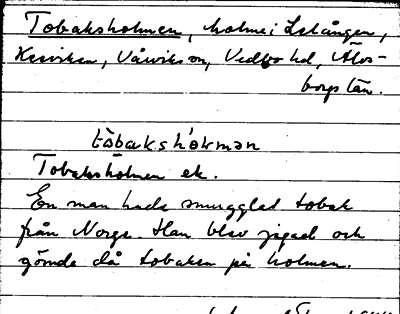 Tobaksholmen, holme i Lelången,
Kesviken, Vårviks sn, Vedbo hd, Älvs-
borgs län.
tobaksholmen
Tobaksholmen ek.
En man hade smugglat tobak
från Norge. Han blev jagad och
gömde då tobaken på holmen.